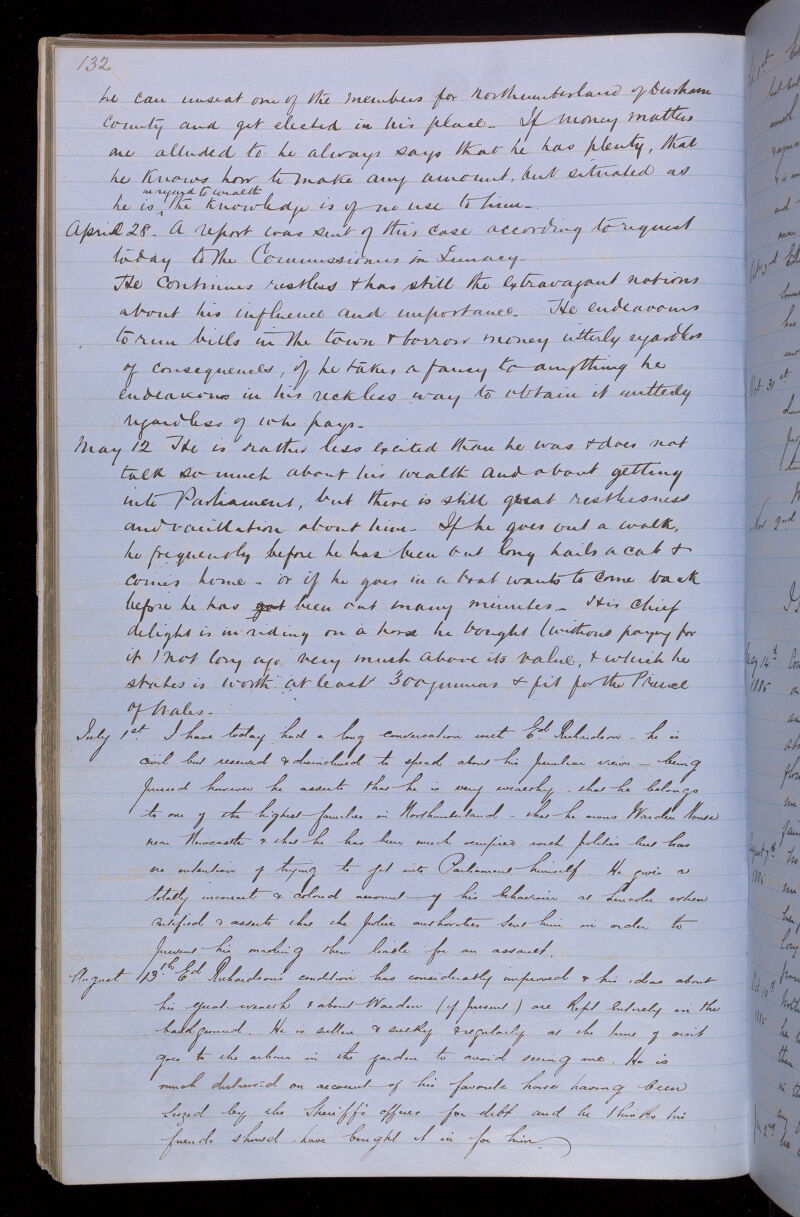 132
he can unseat one of the members for Northumberland of Durham
County and get elected in his place. If money matters
are alluded to he always says that he has plenty, that
he knows how to make any amount, but situated as
in regard to wealth
he is ^ the knowledge is of no use to him.
April 28. A report was sent of this case according to request
today to the Commissioners in Lunacy.
He continues restless & has still the extravagant notions
about his influence and importance. He endeavours
to run bills in the town & borrow money utterly regardless
of consequences, if he takes a fancy to anything he
endeavours in his reckless way to obtain it utterly
regardless of who pays.
May 12 He is rather less excited than he was & does not
talk so much about his wealth and about getting
into Parliament, but there is still great restlessness
and vacillation about him. If he goes out a walk,
he frequently before he has been out long hails a cab &
comes home - or if he goes in a boat wants to come back
before he has got been out many minutes. His chief
delight is in riding on a horse he bought (without paying for
it) not long ago very much above its value, & which he
states is worth at least 300 guineas & fit for the Prince
of Wales.
July 1st I have today had a long conversation with Ed Richardson - he is
civil but reserved & disinclined to speak about his peculiar views - being
pressed however he asserts that he is very wealthy - that he belongs
to one of the highest families in Northumberland - that he owns Warden House
near Newcastle & that he has been much occupied with politics but has
no intention of trying to get into Parliament himself. He gives a
totally incorrect & colored account of his behaviour at Lincoln when
certified & asserts that the police authorities sent him in order to
prevent his making them liable for an assault.
August 13th Ed Richardson's condition has considerably improved & his ideas about
his great wealth & about Warden (if present) are kept entirely in the
background. He is sullen & sulky & regularly at the time of visit
goes to the arbour in the garden to avoid seeing me. He is
much distressed on account of his favorite horse having been
seized by the Sheriff's officers for debt and he thinks his
friends should have bought it in for him.